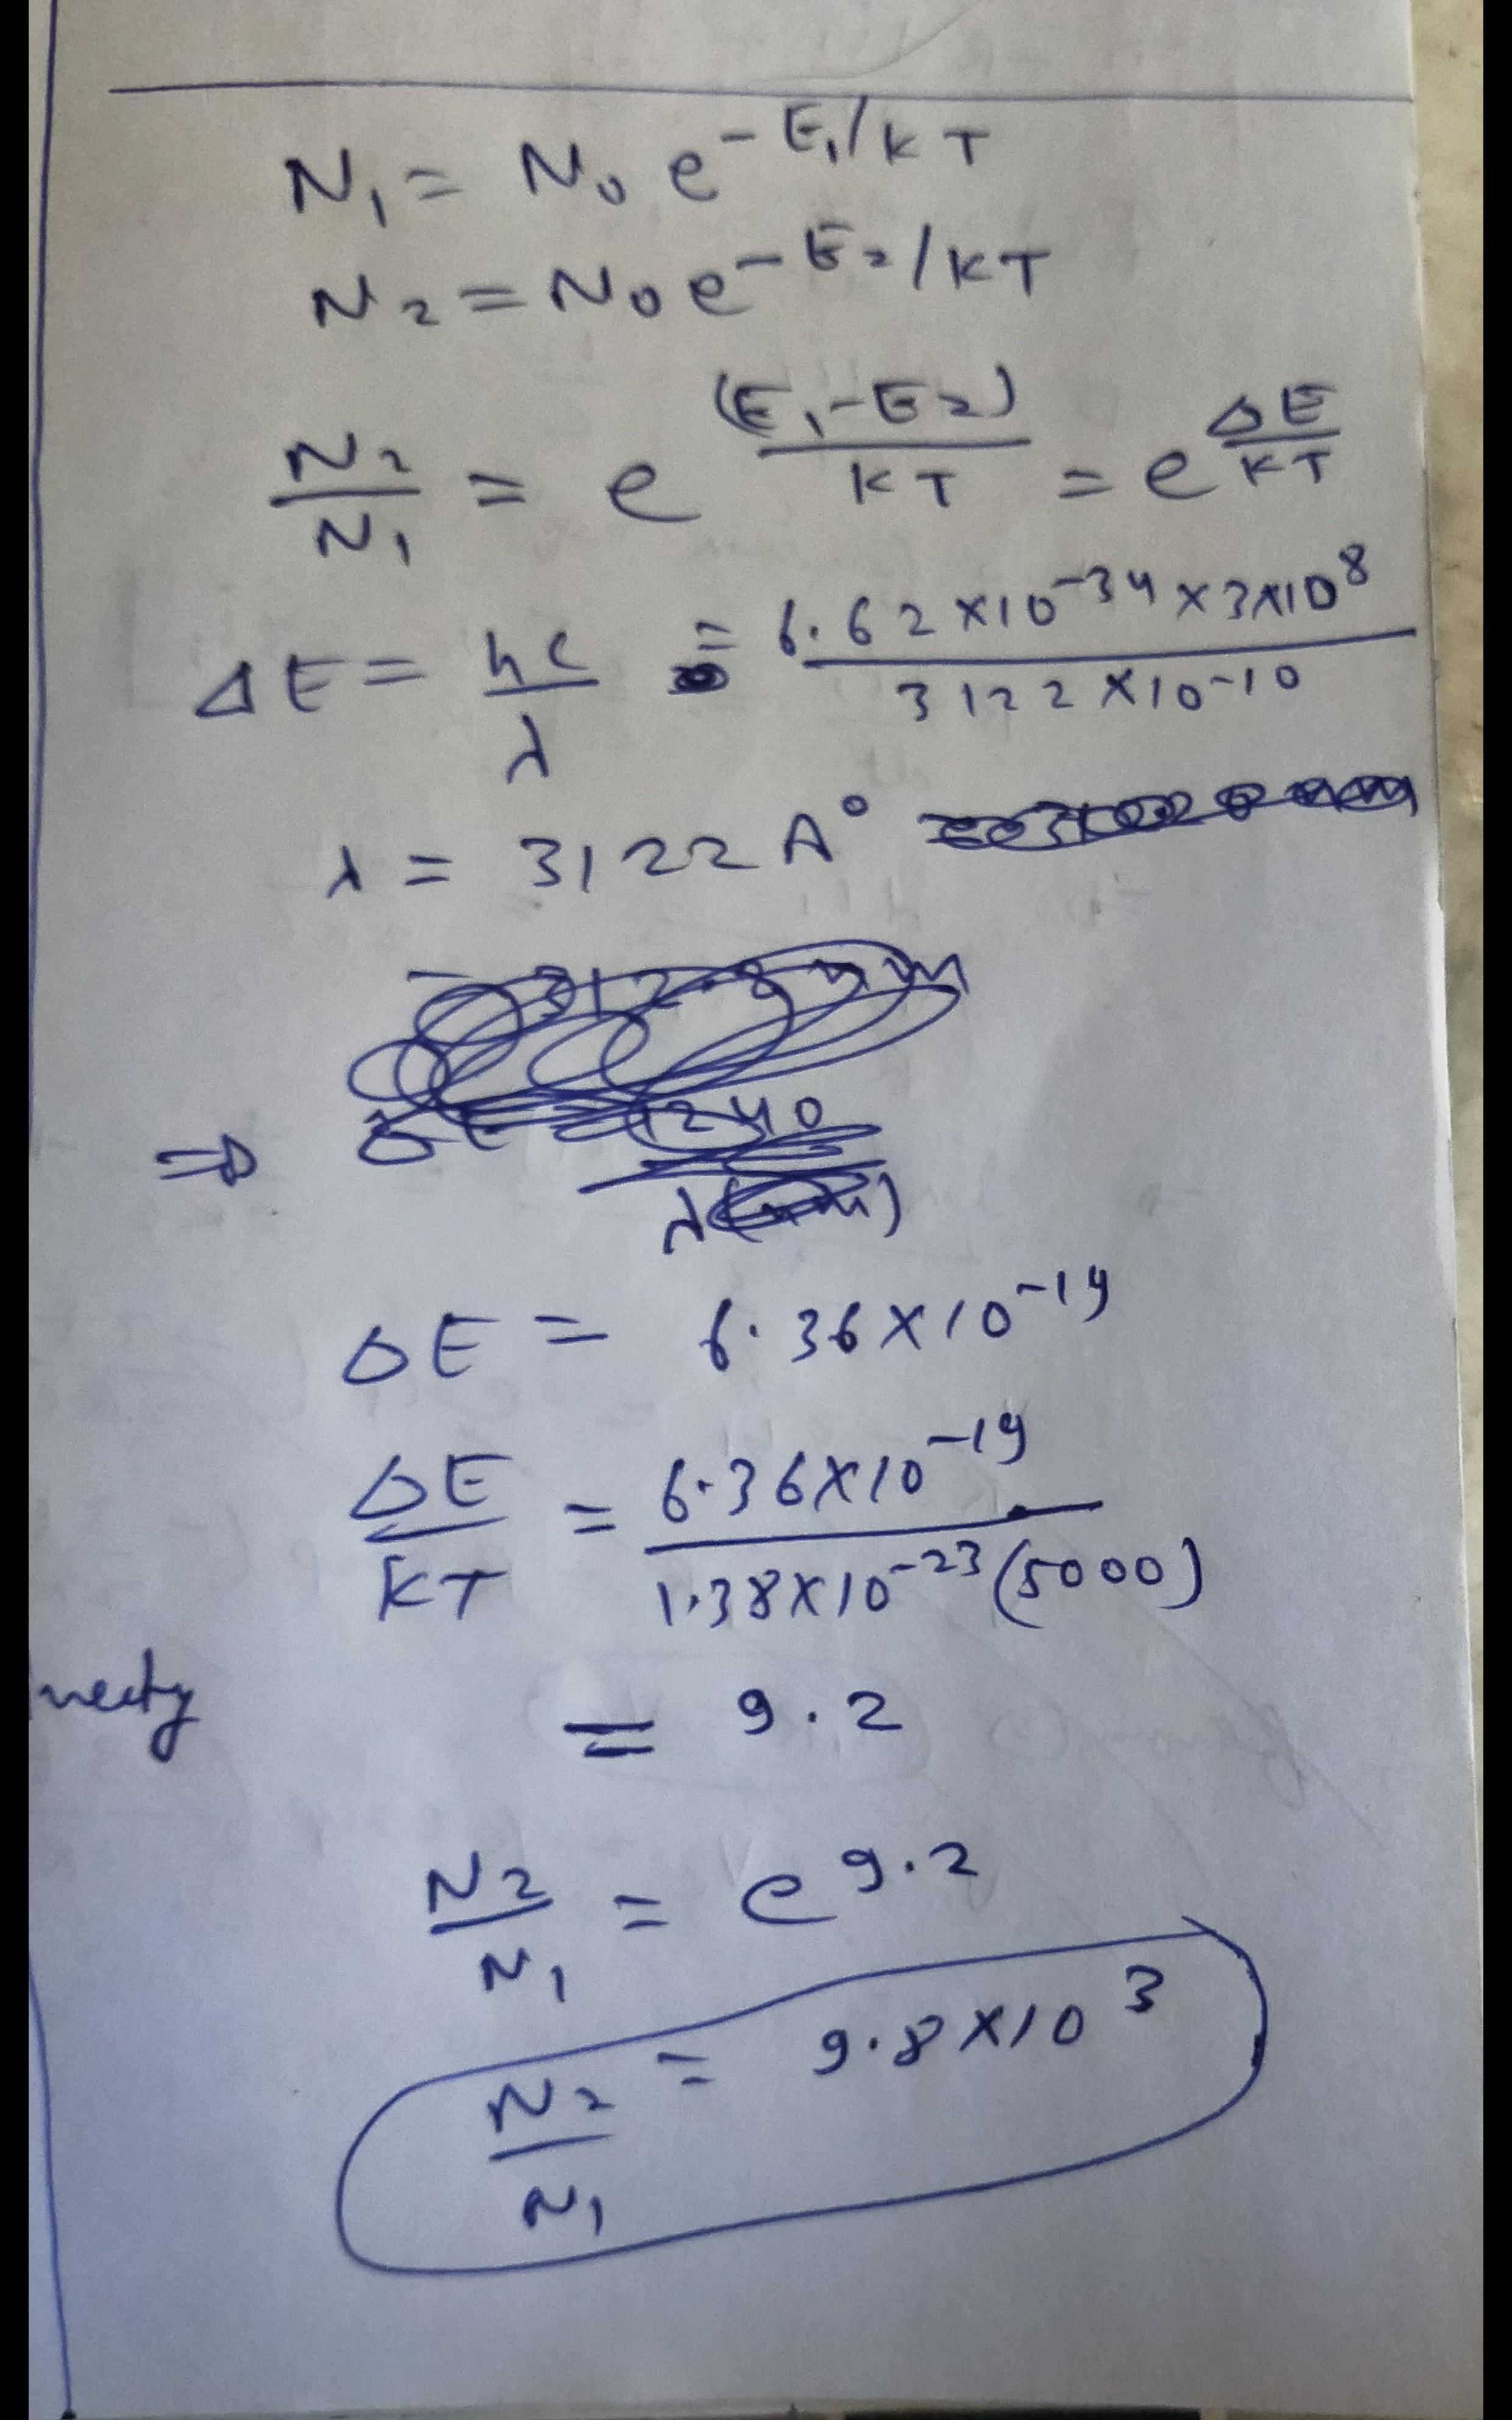 N₁ = N₀ e^{-E₁/KT}
N₂ = N₀ e^{-E₂/KT}
N₂/N₁ = e^{(E₁-E₂)/KT} = e^{ΔE/KT}
ΔE = hc/λ = 6.62×10⁻³⁴×3×10⁸/3122×10⁻¹⁰
λ = 3122 A°
⇒
ΔE = 6.36×10⁻¹⁹
ΔE/KT = 6.36×10⁻¹⁹/1.38×10⁻²³(5000)
= 9.2
N₂/N₁ = e^{9.2}
N₂/N₁ = 9.8×10³